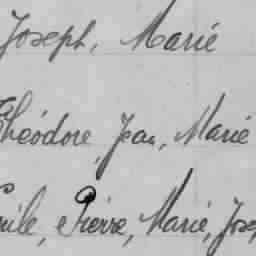 Joseph, Marie
Théodore, Jean, Marie
Emile, Pierre, Marie, Jose